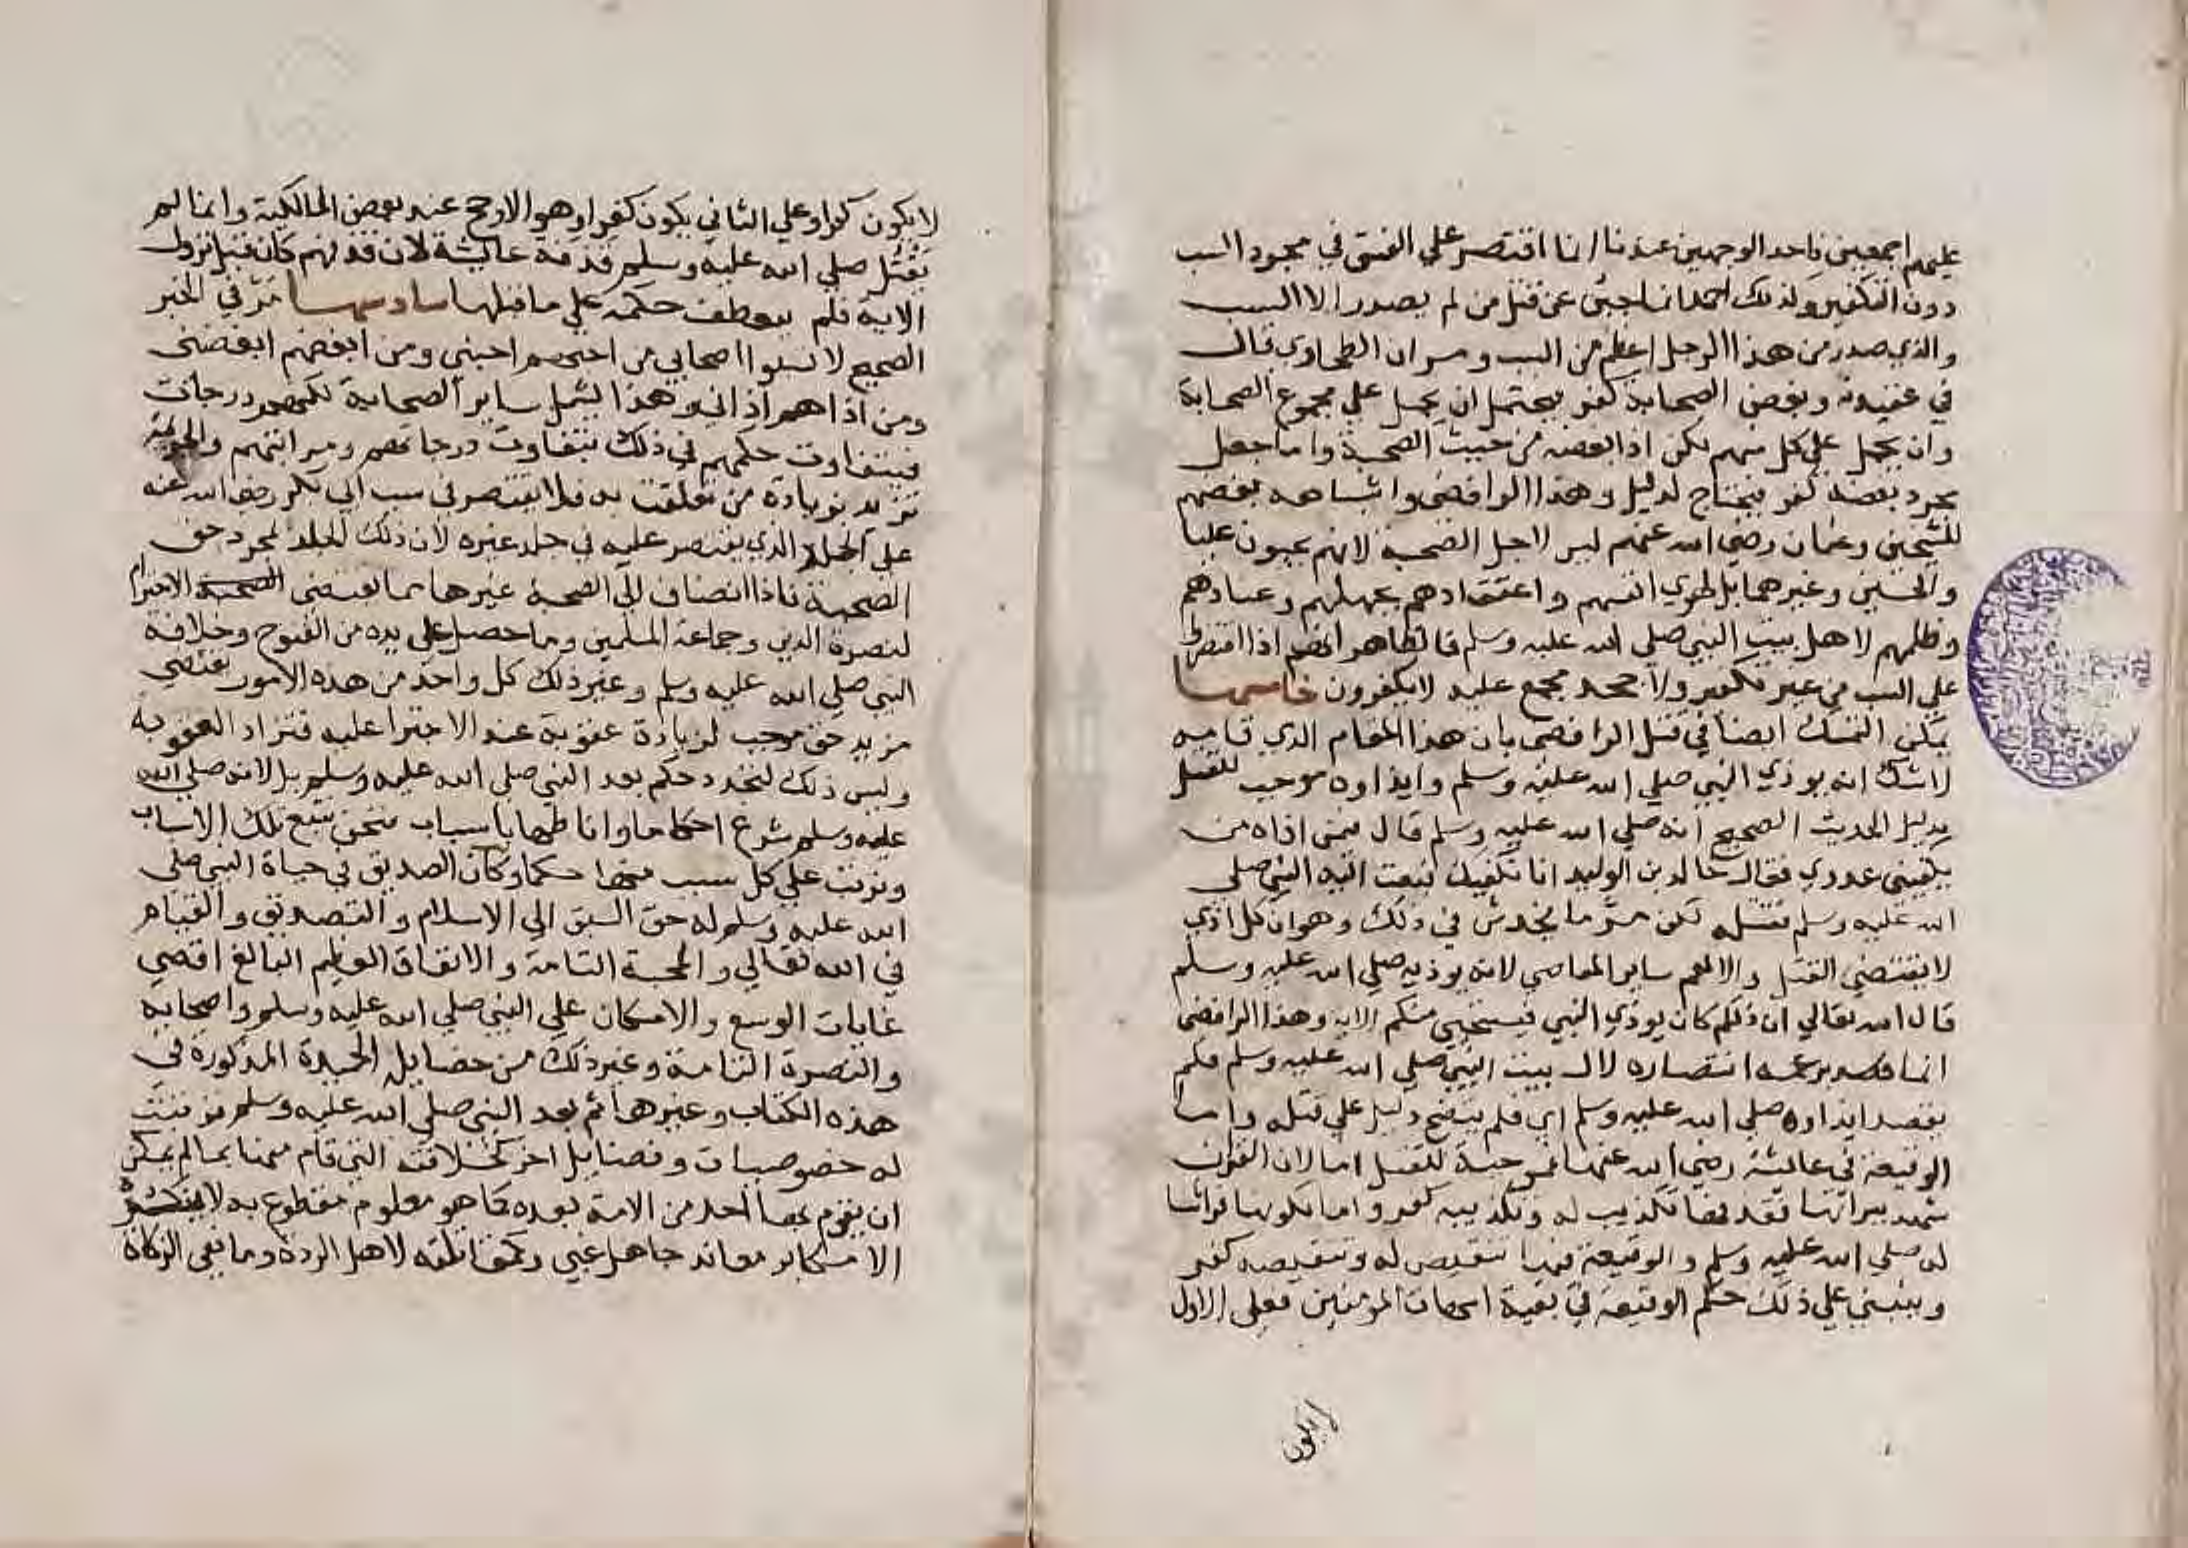 عليهم اجمعين فاحد الوجهين عندنا انما اقتصر علي الفسق في مجرد السب
دون التكفير وكذلك احمد انما جبن عن قتل من لم يصدر الا السب
والذي صدر من هذا الرجل اعظم من السب ومر ان الطحاوي قال
في عقيدته وبغض الصحابة كفر فيحتمل ان يحمل علي مجموع الصحابة
وان يحمل علي كل منهم لكن اذا بغضه من حيث الصحبة واما جعل
مجرد بغضه كفر فيحتاج لدليل وهذا الرافضي واشباهه بغضهم
للشيخين وعثمان رضي الله عنهم ليس لاجل الصحبة لانهم يحبون عليا
والحسنين وغيرهما بل لهوي انفسهم واعتقادهم بجهلهم وعنادهم
وظلمهم لاهل بيت النبي صلي الله عليه وسلم فالظاهر انهم اذا اقتصروا
علي السب من غير تكفير ولا جحد مجمع عليه لا يكفرون خامسها
يمكن التمسك ايضا في قتل الرافضي بان هذا المقام الذي قامه
لا شك انه يوذي النبي صلي الله عليه وسلم وايذاوه موجب للقتل
بدليل الحديث الصحيح انه صلي الله عليه وسلم قال فيمن اذاه من
يكفيني عدوي فقال خالد بن الوليد انا نكفيك فبعث اليه النبي صلي
الله عليه وسلم فقتله لكن مر ما يخدش في ذلك وهو ان كل اذي
لا يقتضي القتل والا لعم ساير المعاصي لانه يوذيه صلي الله عليه وسلم
قال الله تعالي ان ذلكم كان يوذي النبي فيستحيي منكم الاية وهذا الرافضي
انما قصد بزعمه انتصاره لال بيت النبي صلي الله عليه وسلم فلم
يقصد ايذاوه صلي الله عليه وسلم اي فلم يتضح دليل علي قتله واما
الوقيعة في عايشة رضي الله عنها فموجبة للقتل اما لان القران
شهد ببراتها فقذفها تكذيب له وتكذيبه كفر واما لكونها فراشا
له صلي الله عليه وسلم والوقيعة فيها تنقيص له وتنقيصه كفر
وينبني علي ذلك حكم الوقيعة في بقية امهات المومنين فعلي الاول
لا يكون
لا يكون كفرا وعلي الثاني يكون كفرا وهو الارجح عند بعض المالكية وانما لم
يقتل صلي الله عليه وسلم قذفة عايشة لان قذفهم كان قبل نزول
الاية فلم ينعطف حكمه علي ما قبلها سادسها مر في الخبر
الصحيح لا تسبوا اصحابي من احبهم احبني ومن ابغضهم ابغضني
ومن اذاهم اذاني وهذا يشمل ساير الصحابة لكنهم درجات
فيتفاوت حكمهم في ذلك بتفاوت درجاتهم ومراتبهم والجريمة
تزيد بزيادة من تعلقت به فلا يقتصر في سب ابي بكر رضي الله عنه
علي الجلد الذي يقتصر عليه في جلد غيره لان ذلك الجلد لمجرد حق
الصحبة فاذا انضاف الي الصحبة غيرها مما يقتضي الاحترام
لنصرة الدين وجماعة المسلمين وما حصل علي يده من الفتوح وخلافة
النبي صلي الله عليه وسلم وغير ذلك كل واحد من هذه الامور يقتضي
مزيد حق موجب لزيادة عقوبة عند الاجترا عليه فتزاد العقوبة
وليس ذلك لتجدد حكم بعد النبي صلي الله عليه وسلم بل لانه صلي الله
عليه وسلم شرع احكاما واناطها باسباب فنحن نتبع تلك الاسباب
ونرتب علي كل سبب منها حكما وكان الصديق في حياة النبي صلي
الله عليه وسلم له حق السبق الي الاسلام والتصديق والقيام
في الله تعالي والمحبة التامة والانفاق العظيم البالغ اقصي
غايات الوسع والامكان علي النبي صلي الله عليه وسلم واصحابه
والنصرة التامة وغير ذلك من خصايله الحميدة المذكورة في
هذه الكتاب وغيرها ثم بعد النبي صلي الله عليه وسلم ترتبت
له خصوصيات وفضايل اخر كخلافته التي قام فيها بما لم يمكن
ان يقوم بها احد من الامة بعده كما هو معلوم مقطوع به لا ينكره
الا مكابر معاند جاهل غبي وكمقاتلته لاهل الردة ومانعي الزكاة